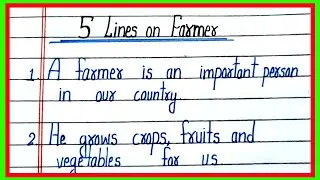 5 Lines on Farmer
1. A farmer is an important person
in our country.
2. He grows crops, fruits and
vegetables for us.